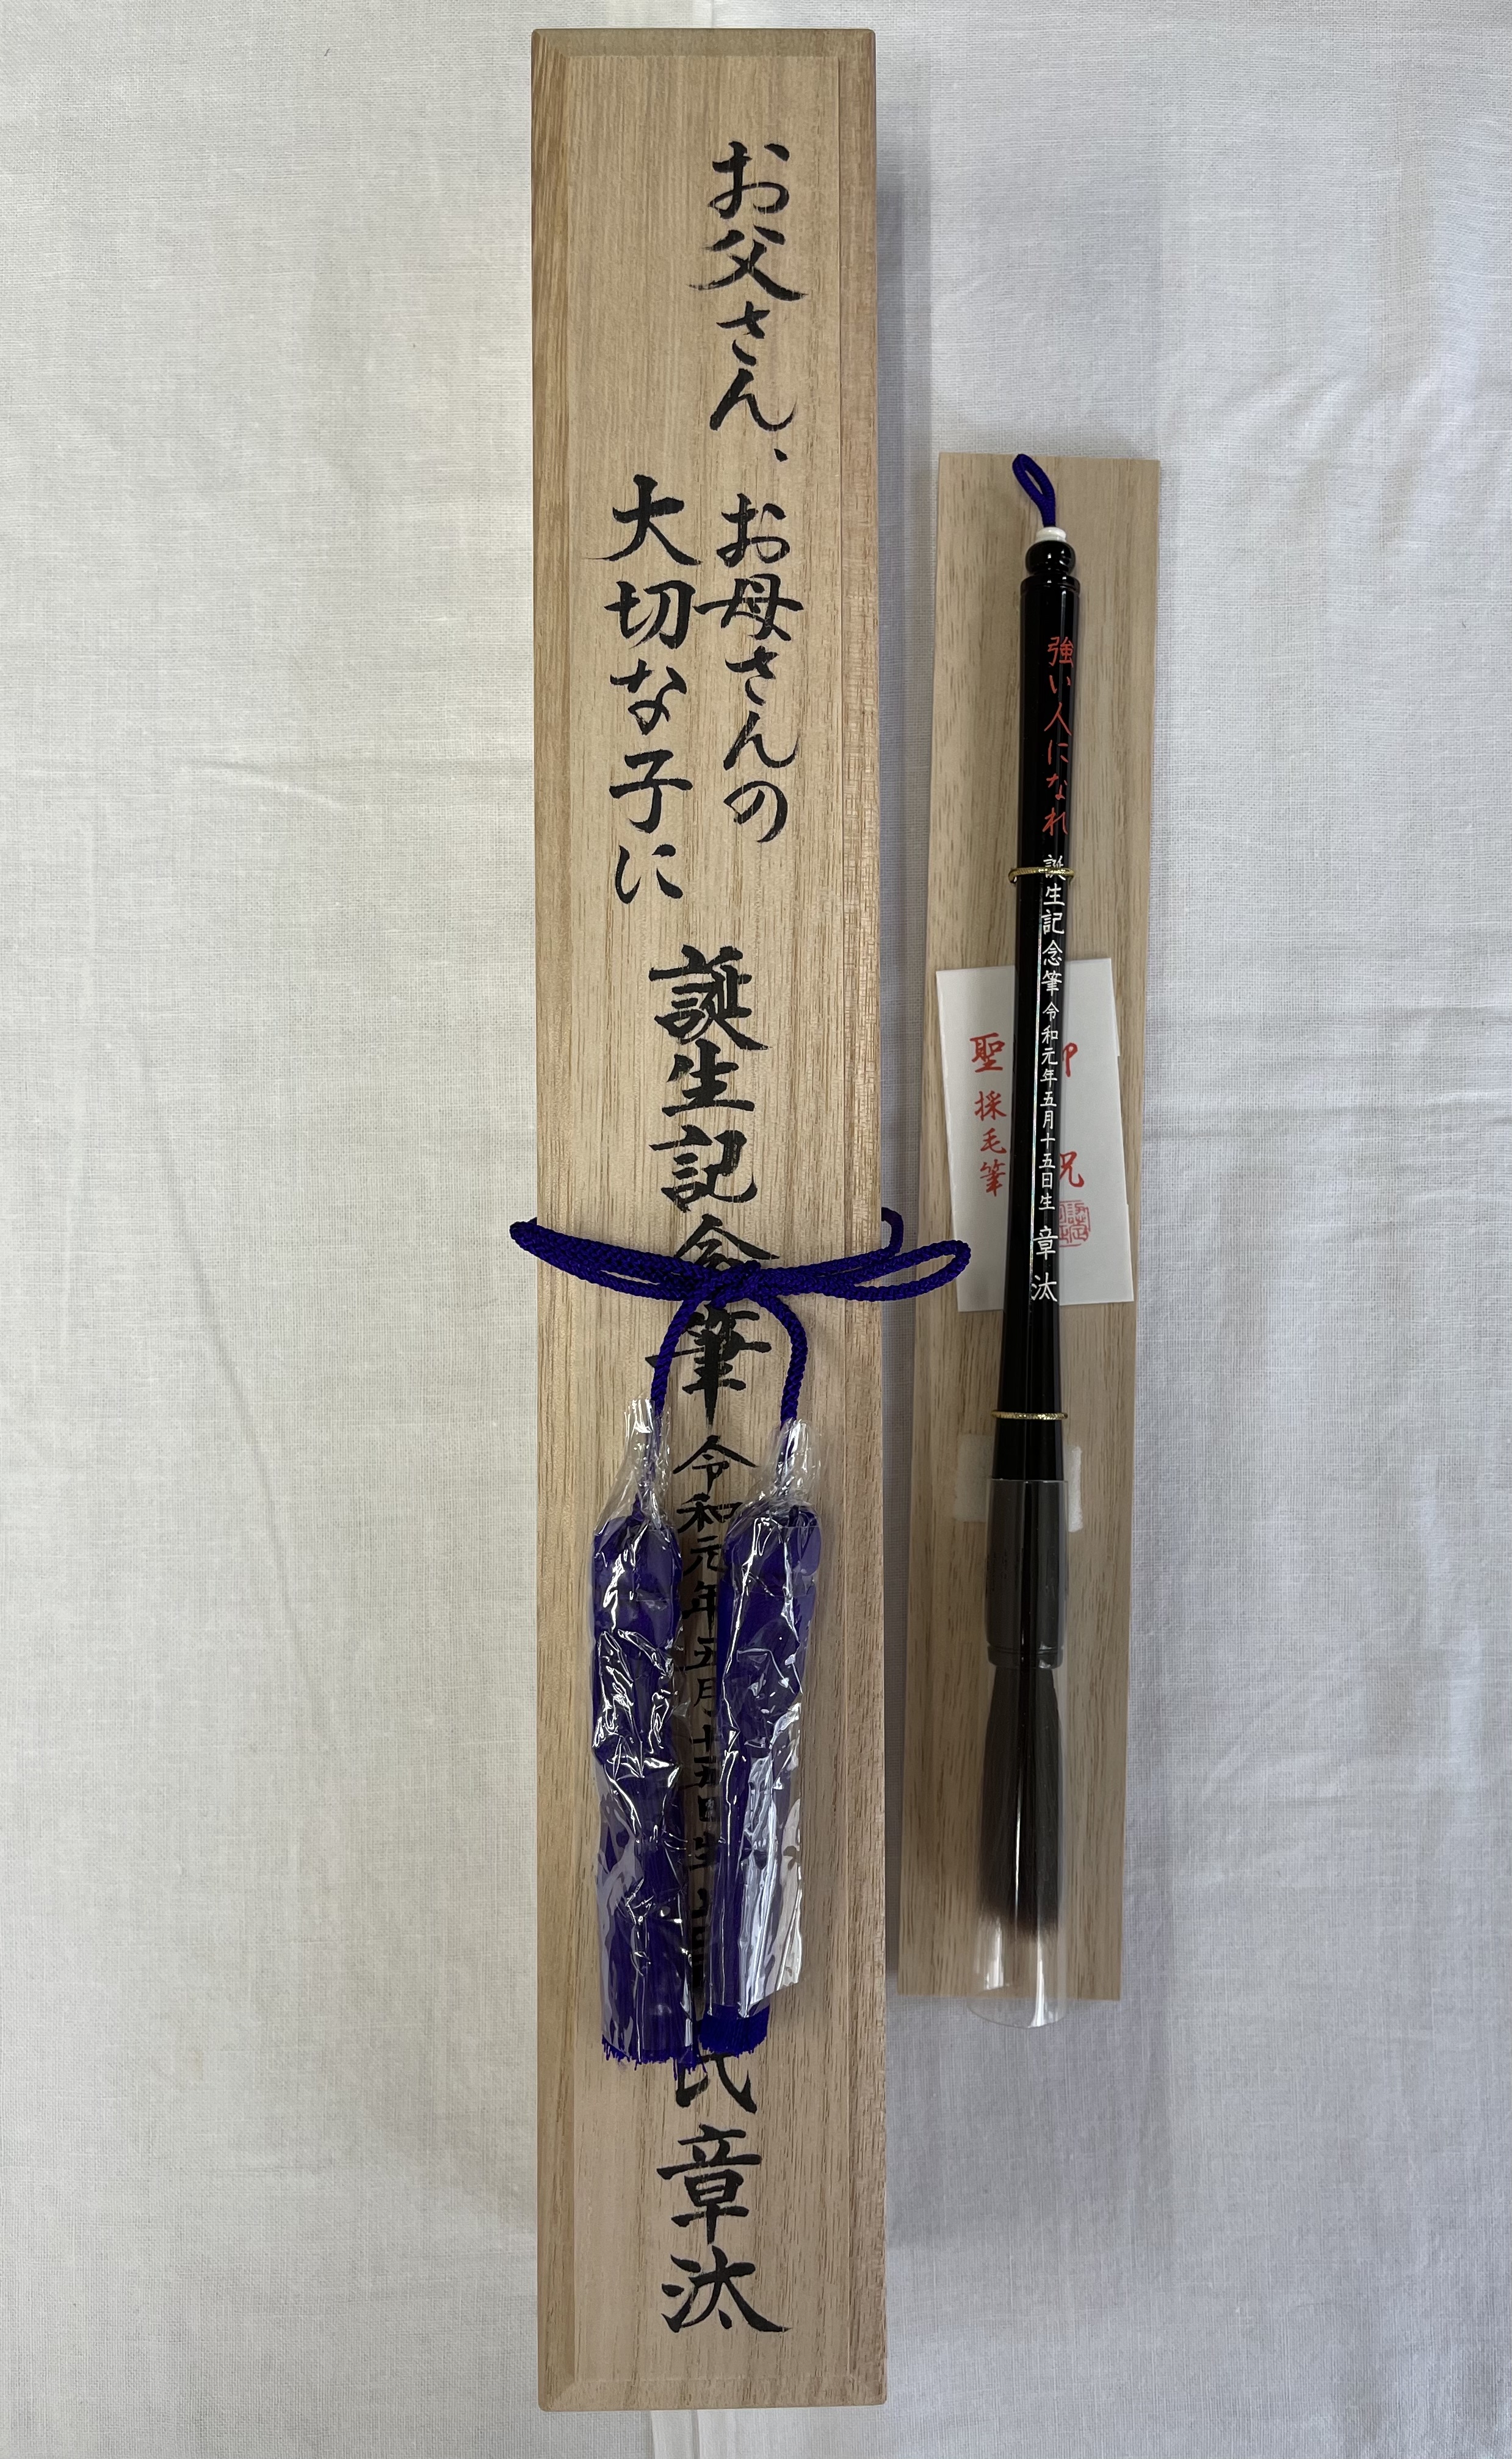 お父さん、お母さんの
大切な子に
誕生記念筆 令和元年五月十五日生 氏 章汰
強い人になれ
誕生記念筆 令和元年五月十五日生 章汰
御祝
聖採毛筆